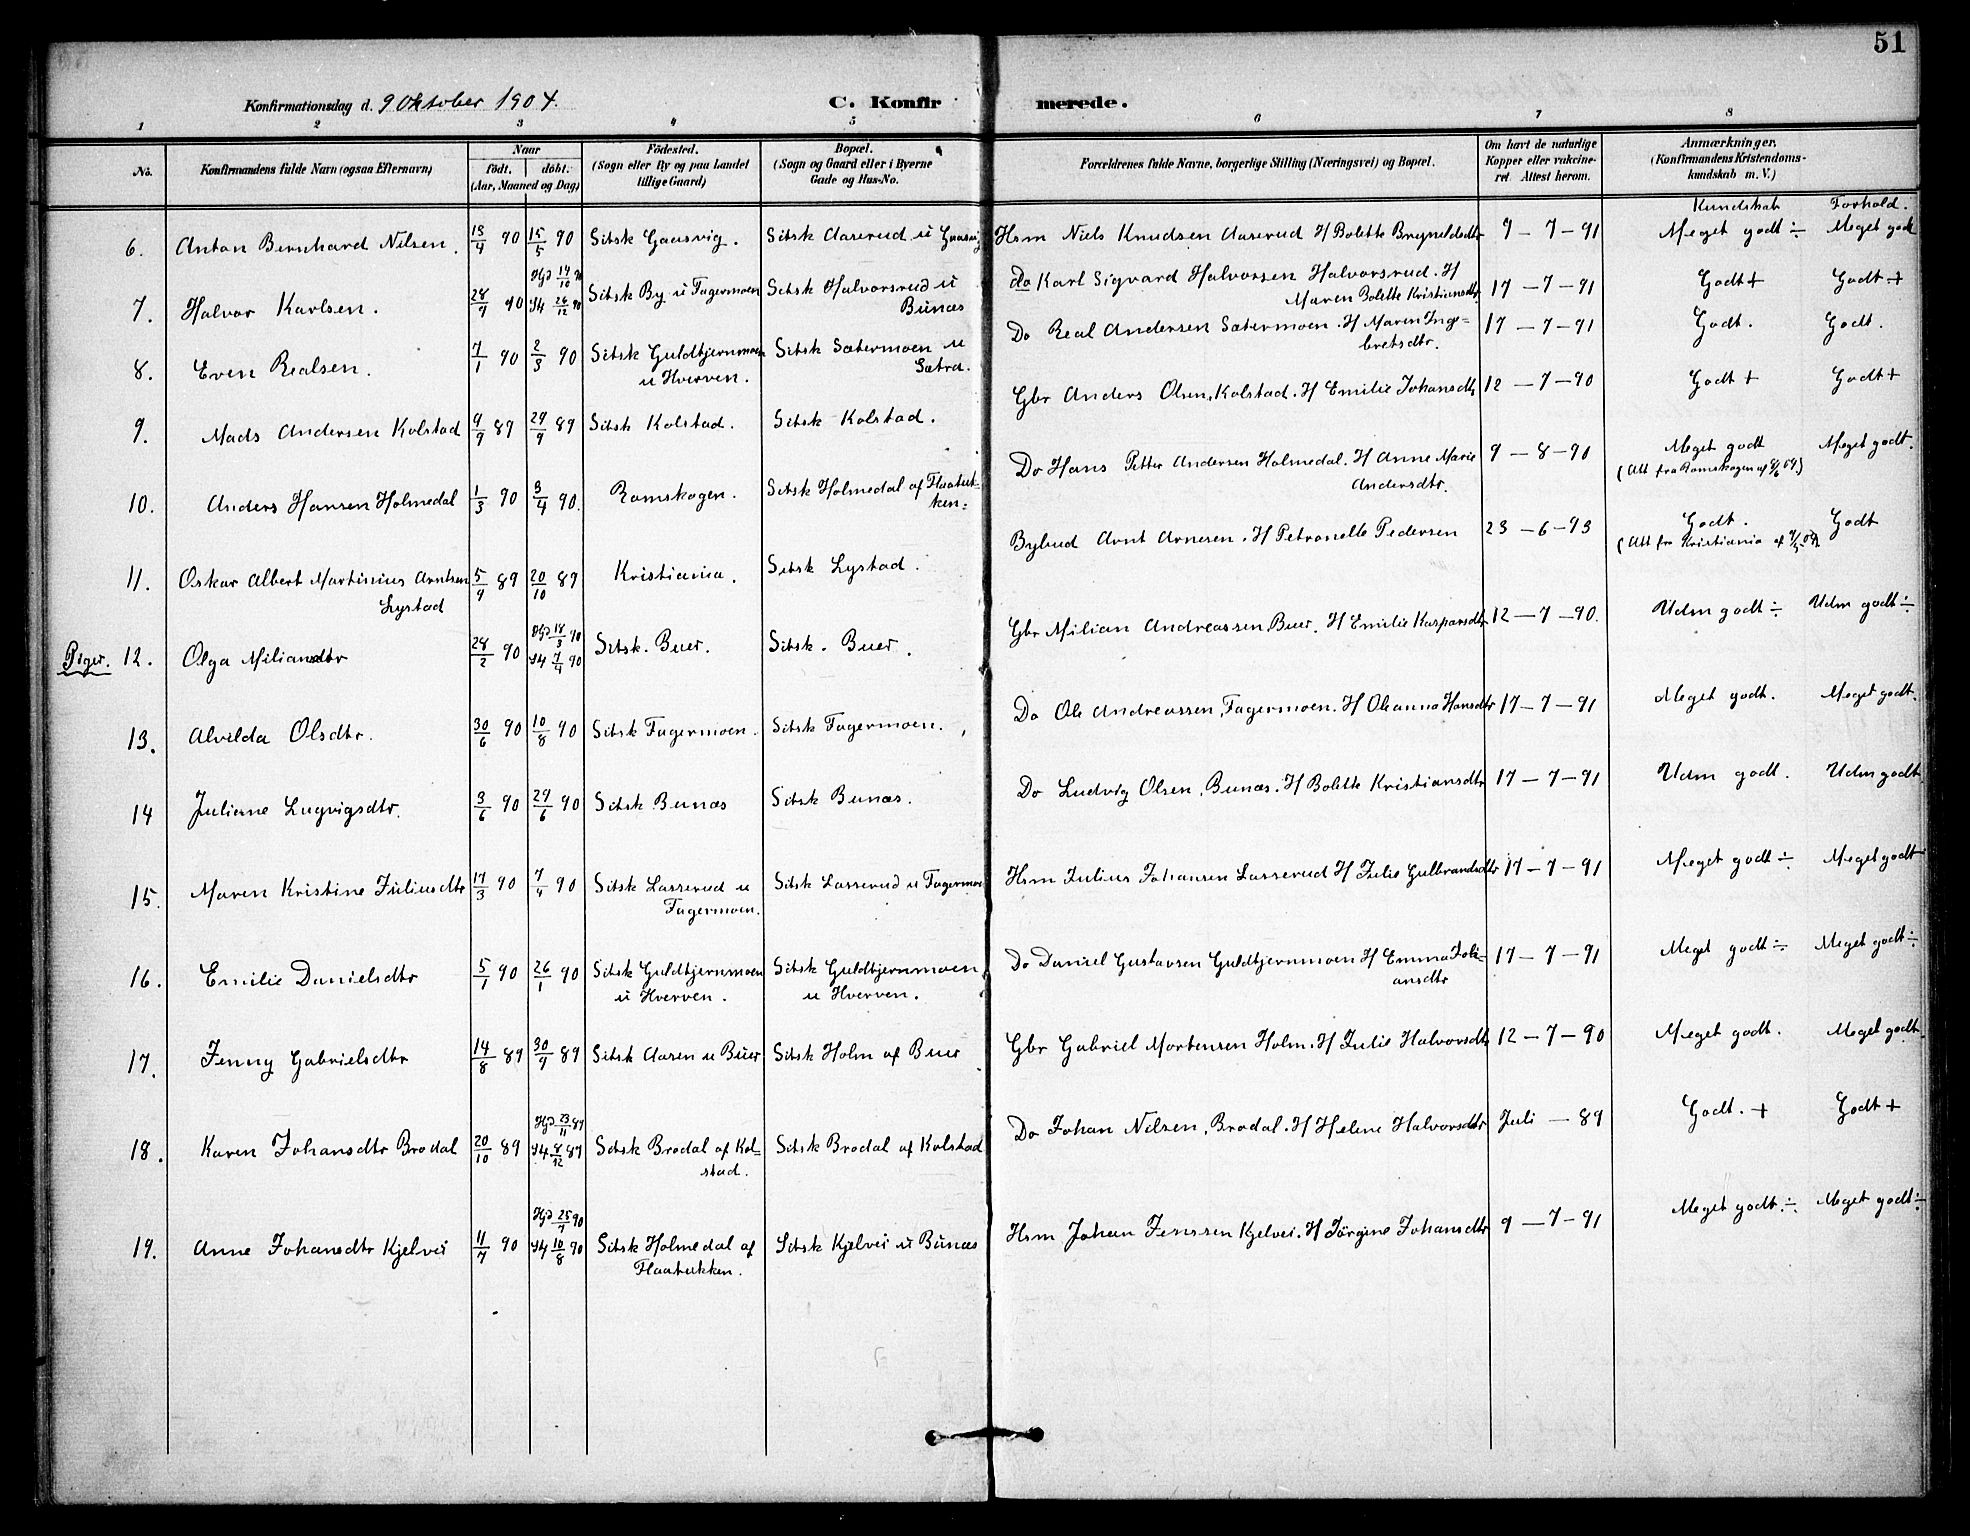 51
Konfirmationsdag d. 9 Oktober 1904. C. Konfirmerede.
1 2 3 4 5 6 7 8
No. Konfirmandens fulde Navn (ogsaa Efternavn) Naar født. døbt. (Aar, Maaned og Dag) Fødested. (Sogn eller By og paa Landet tillige Gaard) Bopæl. (Sogn og Gaard eller i Byerne Gade og Hus-No. Forældrenes fulde Navne, borgerlige Stilling (Næringsvei) og Bopæl. Om havt de naturlige Kopper eller vakcineret Attest herom. Anmærkninger. (Konfirmandens Kristendomskundskab m. V.)
Kundskab Forhold.
6. Anton Bernhard Nilsen. 13/4 90 15/5 90 Sitsk Gaasvig. Sitsk Aaserud u Gaasvig Hsm Niels Knudsen Aaserud H Bolette Brynildsdtr 9-7-91 Meget godt ÷ Meget godt
7. Halvor Karlsen. 28/9 90 Hjd 14/10 90 I4 26/12 90 Sitsk By u Fagermoen Sitsk Halvorsrud u Bunæs Do Karl Sigvard Halvorsen Halvorsrud. H Maren Bolette Kristiansdtr. 17-7-91 Godt + Godt +
8. Even Realsen. 7/1 90 2/3 90 Sitsk Guldtjernmoen u Hverven. Sitsk Sætermoen u Sætra. Do Real Andersen Sætermoen. H Maren Ingebretsdtr. 17-7-91 Godt. Godt.
9. Mads Andersen Kolstad 9/9 89 29/9 89 Sitsk Kolstad. Sitsk Kolstad. Gbr Anders Olsen, Kolstad. H Emilie Johansdtr 12-7-90 Godt + Godt +
10. Anders Hansen Holmedal 1/3 90 3/4 90. Romskogen. Sitsk Holmedal af Flaatukken. Do Hans Petter Andersen Holmedal. H Anne Marie Andersdtr. 9-8-91 Meget godt (Att fra Romskogen af 8/6 04) Meget godt.
11. Oskar Albert Martinius Arntsen Lystad 5/9 89 20/10 89 Kristiania. Sitsk Lystad. Bybud Arnt Arnesen. H Petronelle Pedersen 23-6-93 Godt. (Att fra Kristiania af Godt
Piger. 12. Olga Miliansdtr 28/2 90 Hjd 18/3 90 I4 7/4 90 Sitsk. Buer. Sitsk. Buer. Gbr Milian Andreassen Buer. H Emilie Kasparsdtr 12-7-90. Udm godt ÷ Udm godt ÷
13. Alvilda Olsdtr. 30/6 90 10/8 90 Sitsk Fagermoen. Sitsk Fagermoen. Do Ole Andreassen, Fagermoen. H Oleanna Hansdtr 17-7-91 Meget godt. Meget godt.
14 Juliane Lugvigsdtr. 3/6 90 29/6 90 Sitsk Bunæs Sitsk Bunæs. Do Ludvig Olsen, Bunæs. H Bolette Kristiansdtr 17-7-91 Udm godt. Udm godt
15. Maren Kristine Juliusdtr 17/3 90 7/4 90 Sitsk Lasserud u Fagermoen. Sitsk Lasserud u Fagermoe Hsm Julius Johansen Lasserud H Julie Gulbrandsdtr 17-7-91 Meget godt ÷ Meget godt
16. Emilie Danielsdtr 5/1 90 26/1 90 Sitsk Guldtjernmoen u Hverven. Sitsk Guldtjernmoen u Hverven. Do Daniel Gustavsen Guldtjernmoen H Emma Johansdtr 17-7-91 Meget godt ÷ Meget godt ÷
17. Jenny Gabrielsdtr 14/8 89 30/9 89 Sitsk Aasen u Buer Sitsk Holm af Buer Gbr Gabriel Mortensen Holm. H Julie Halvorsdtr 12-7-90 Meget godt. Meget godt
18. Karen Johansdtr Brodal 20/10 89 Hjd 23/11 89 I4 8/12 89 Sitsk Brodal af Kolstad. Sitsk Brodal af Kolstad Do Johan Nilsen, Brodal. H Helene Halvorsdtr Juli - 89 Godt. + Godt +
19. Anne Johansdtr Kjelvei 11/7 90 Hjd 25/7 90 I4 10/8 90 Sitsk Holmedal af Flaatukken. Sitsk Kjelvei u Bunæs Hsm Johan Jenssen Kjelvei. H Jørgine Johansdtr 9-7-91 Meget godt. ÷ Meget godt ÷